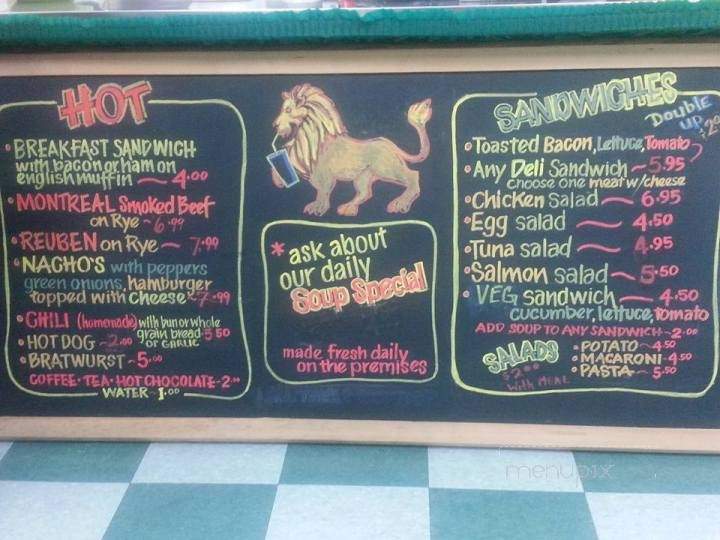 HOT
• BREAKFAST SANDWICH
with bacon or ham on
english muffin ~ 4.00
• MONTREAL Smoked Beef
on Rye ~ 6.99
• REUBEN on Rye ~ 7.99
• NACHO'S with peppers
green onions, hamburger
topped with cheese ~ 7.99
• CHILI (homemade) with bun or whole
grain bread 5.50
or GARLIC
• HOT DOG ~ 2.00
• BRATWURST ~ 5.00
COFFEE • TEA • HOT CHOCOLATE ~ 2.00
WATER ~ 1.00
* ask about
our daily
Soup Special
made fresh daily
on the premises
SANDWICHES
Double
up
• Toasted Bacon, Lettuce, Tomato
• Any Deli Sandwich ~ 5.95
choose one meat w/cheese
• Chicken Salad ~ 6.95
• Egg salad ~ 4.50
• Tuna salad ~ 4.95
• Salmon salad ~ 5.50
• VEG sandwich ~ 4.50
cucumber, lettuce, tomato
ADD SOUP TO ANY SANDWICH ~ 2.00
SALADS
$2.00
with MEAL
• POTATO ~ 4.50
• MACARONI ~ 4.50
• PASTA ~ 5.50
menupix